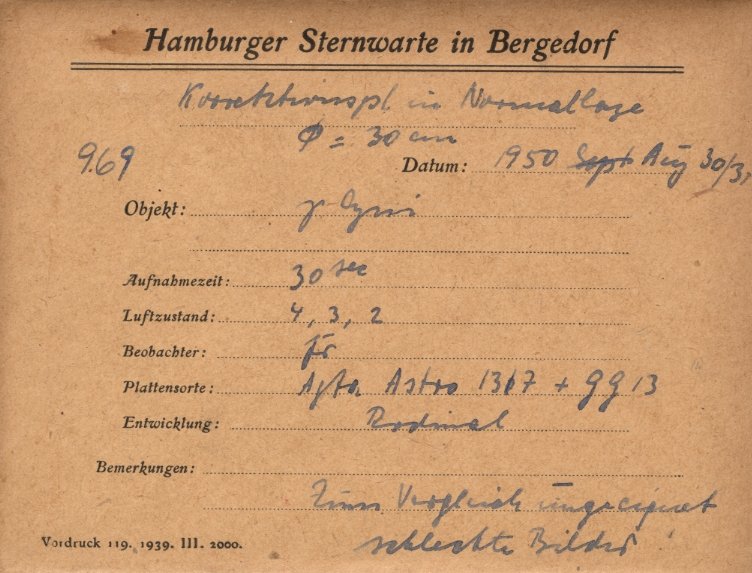 Hamburger Sternwarte in Bergedorf
Korrektionspl. in Normallage
Φ = 30 cm
969
Datum: 1950 Sept Aug 30/31
Objekt: γ Cygni
Aufnahmezeit: 30 sec
Luftzustand: 4, 3, 2
Beobachter:
Plattensorte: Agfa Astro 1317 + GG 13
Entwicklung: Rodinal
Bemerkungen:
Zum Vergleich ungeeignet
schlechte Bilder
Vordruck 119. 1939. III. 2000.